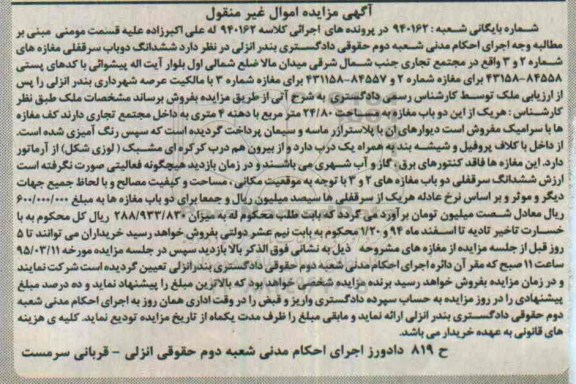 آگهی مزایده اموال غیر منقول
شماره بایگانی شعبه: ۹۴۰۱۶۲ در پرونده های اجرائی کلاسه ۹۴۰۱۶۲ له علی اکبرزاده علیه قسمت مومنی مبنی بر
مطالبه وجه اجرای احکام مدنی شعبه دوم حقوقی دادگستری بندر انزلی در نظر دارد ششدانگ دوباب سرقفلی مغازه های
شماره ۲ و ۳ واقع در مجتمع تجاری جنب شمال شرقی میدان مالا ضلع شمالی اول بلوار آیت اله پیشوائی با کدهای پستی
۸۴۵۵۸-۴۳۱۵۸ برای مغازه شماره ۲ و ۸۴۵۵۷-۴۳۱۵۸ برای مغازه شماره ۳ با مالکیت عرصه شهرداری بندر انزلی را پس
از ارزیابی ملک توسط کارشناس رسمی دادگستری به شرح آتی از طریق مزایده بفروش برساند مشخصات ملک طبق نظر
کارشناس: هریک از این دو باب مغازه به مساحت ۲۴/۸۰ متر مربع با دهنه ۴ متری به داخل مجتمع تجاری دارند کف مغازه
ها با سرامیک مفروش است دیوارهای آن با پلاسترازر ماسه و سیمان پرداخت گردیده است که سپس رنگ آمیزی شده است.
از داخل با کلاف پروفیل و شیشه بند به همراه یک درب دارد و از بیرون هم درب کرکره ای مشبک (لوزی شکل) از آرماتور
دارد. این مغازه ها فاقد کنتورهای برق، گاز و آب شهری می باشند و در زمان بازدید هیچگونه فعالیتی صورت نگرفته است
ارزش ششدانگ سرقفلی دو باب مغازه های ۲ و ۳ با توجه به موقعیت مکانی، مساحت و کیفیت مصالح و با لحاظ جمیع جهات
دیگر و موثر و بر اساس نرخ عادله هریک از سرقفلی ها سیصد میلیون ریال و جمعا برای دو باب مغازه ها به مبلغ ۶۰۰/۰۰۰/۰۰۰
ریال معادل شصت میلیون تومان برآورد می گردد که بابت طلب محکوم له به میزان ۲۸۸/۹۳۳/۸۳۰ ریال کل محکوم به با
خسارت تاخیر تادیه تا اسفند ماه ۹۴ و ۱/۲۰ محکوم به بابت نیم عشر دولتی بفروش خواهد رسید خریداران می توانند تا ۵
روز قبل از جلسه مزایده از مغازه های مشروحه ذیل به نشانی فوق الذکر بالا بازدید سپس در جلسه مزایده مورخه ۹۵/۰۳/۱۱
ساعت ۱۱ صبح که مقر آن دائره اجرای احکام مدنی شعبه دوم حقوقی دادگستری بندرانزلی تعیین گردیده است شرکت نمایند
و در زمان مزایده بفروش خواهد رسید برنده مزایده شخصی خواهد بود که بالاترین مبلغ را پیشنهاد نماید و ده درصد مبلغ
پیشنهادی را در روز مزایده به حساب سپرده دادگستری واریز و قبض را در وقت اداری همان روز به اجرای احکام مدنی شعبه
دوم حقوقی دادگستری بندر انزلی ارائه نماید و مابقی مبلغ را ظرف مدت یکماه از تاریخ مزایده تودیع نماید. کلیه ی هزینه
های قانونی به عهده خریدار می باشد.
ح ۸۱۹ دادورز اجرای احکام مدنی شعبه دوم حقوقی انزلی - قربانی سرمست